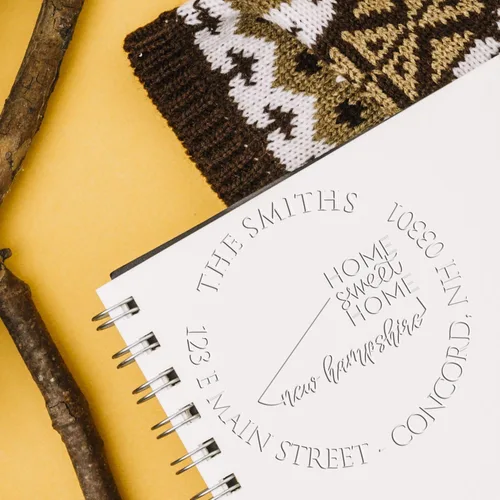 THE SMITHS
HOME
sweet
HOME
new hampshire
123 E MAIN STREET · CONCORD, NH 03301